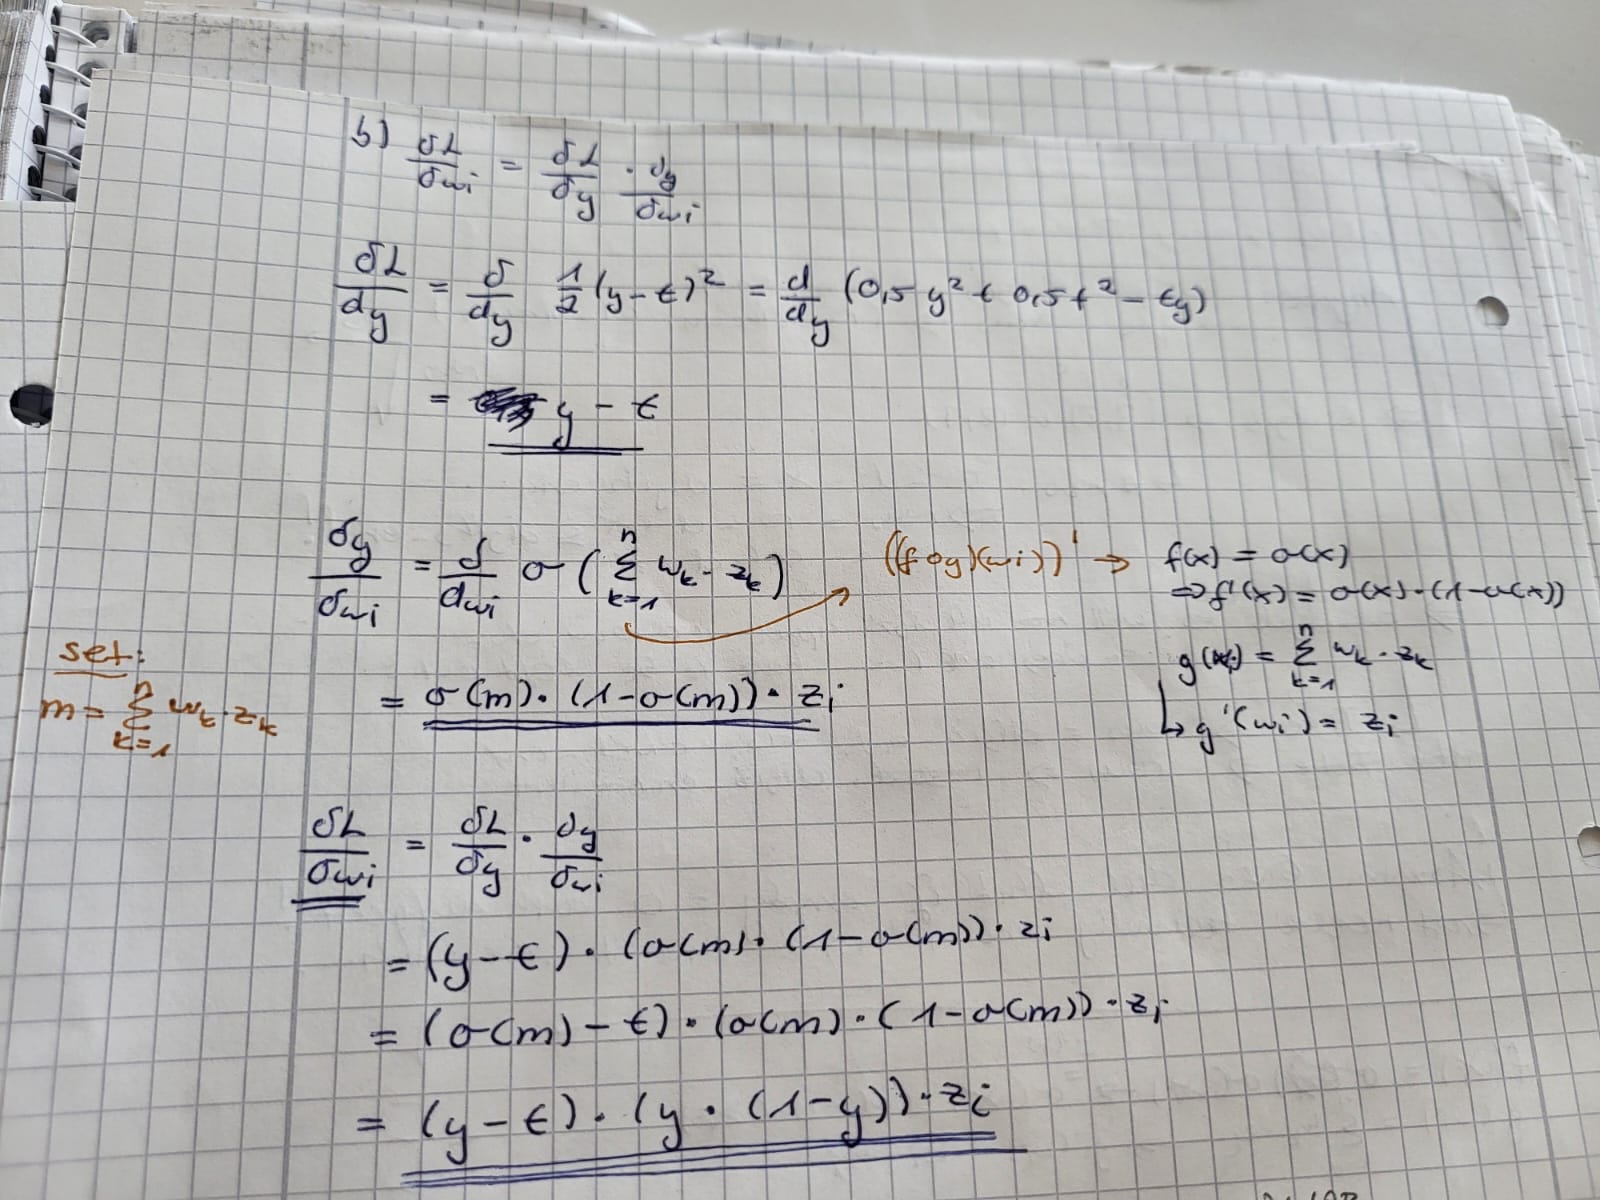 b) δL/δwi = δL/δy · δy/δwi
δL/dy = δ/dy 1/2 (y-t)² = d/dy (0,5 y² + 0,5 t² - ty)
= y - t
δy/δwi = δ/dwi σ( n Σ k=1 wk · zk ) ((f o g)(wi))' → f(x) = σ(x)
⇒ f'(x) = σ(x) · (1-σ(x))
set: g(wi) = n Σ k=1 wk · zk
m = n Σ k=1 wk · zk = σ(m) · (1-σ(m)) · zi ↳ g'(wi) = zi
δL/δwi = δL/δy · δy/δwi
= (y-t) · (σ(m) · (1-σ(m)) · zi
= (σ(m) - t) · (σ(m) · (1-σ(m)) · zi
= (y-t) · (y · (1-y)) · zi